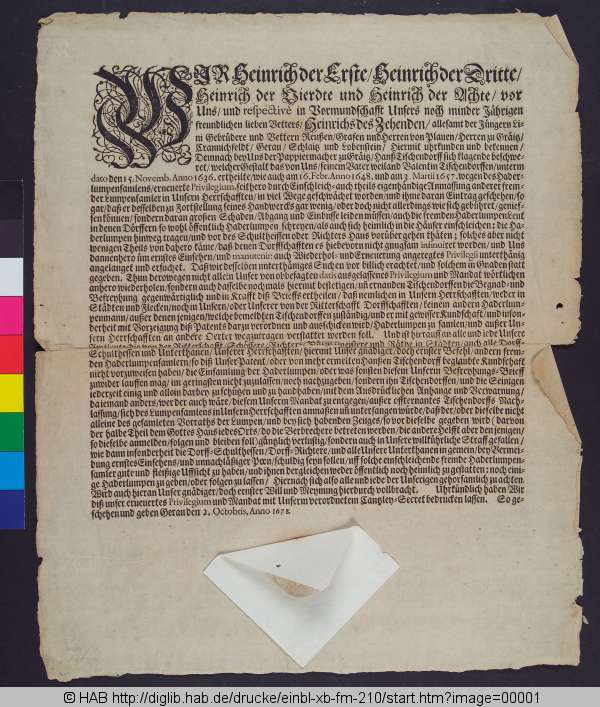 WIR Heinrich der Erste/ Heinrich der Dritte/
Heinrich der Vierdte und Heinrich der Achte/ vor
Uns/ und respectivè in Vormundschafft Unsers noch minder Jährigen
freundlichen lieben Vetters/ Heinrichs des Zehenden/ allesamt der Jüngern Li-
ni Gebrüdere und Vettern Reussen/ Grafen und Herren von Plauen/ Herren zu Gräitz/
Crannichfeldt/ Gerau/ Schlaitz und Lobenstein/ Hiermit uhrkunden und bekennen/
Demnach bey Uns der Pappiermacher zu Gräitz/ Hanß Tischendorff sich klagende beschwe-
ret/ welcher Gestalt das von Uns/ seinem Vater weiland Valentin Tischendorffen/ unterm
dato den 15. Novemb. Anno 1636. ertheilte/ wie auch am 16. Febr. Anno 1648. und am 3. Martii 1657. wegen des Hader-
lumpensamlens/ erneuerte Privilegium, seithero durch Einschleich- auch theils eigenthätige Anmassung anderer frem-
der Lumpensamler in Unsern Herrschafften/ in viel Wege geschwächet worden/ und ihme daran Eintrag geschehen/ so
gar/ daß er desselben zu Fortstellung seines Handwercks gar wenig/ oder doch nicht allerdings wie sichs gebühret/ genies-
sen können/ sondern daran großen Schaden/ Abgang und Einbusse leiden müssen/ auch die fremden Haderlumpen Leut
in denen Dörffern so wohl öffentlich Haderlumpen schreyen/ als auch sich heimlich in die Häuser einschleichen; die Ha-
derlumpen hinweg tragen/ und vor des Schultheissen oder Richters Haus vorüber gehen thäten; solches aber nicht
wenigen Theils von dahero käme/ daß denen Dorffschafften es hiebevorn nicht gnugsam insinuiret worden/ und Uns
dannenhero üm ernstes Einsehen/ und manutenir: auch Wiederhol- und Erneuerung angeregtes Privilegii unterthänig
angelanget und ersuchet. Daß wir desselben unterthäniges Suchen vor billich erachtet/ und solchem in Gnaden statt
gegeben. Thun derowegen nicht allein Unser von obbesagten datis ausgelassenes Privilegium und Mandat wörtlichen
anhero wiederholen/ sondern auch dasselbe nochmals hiermit bestetigen/ ernanden Tischendorffen die Begnad- und
Befreyhung gegenwärtiglich und in Krafft diß Brieffs ertheilen/ daß nemlichen in Unsern Herrschafften/ weder in
Städten und Flecken/ noch in Unsern/ oder Unserer von der Ritterschafft Dorffschafften/ keinem andern Haderlum-
penmann/ ausser denen jenigen/ welche bemeldten Tischendorffen zuständig/ und er mit gewisser Kundschafft/ und inson-
derheit mit Vorzeigung diß Patents darzu verordnen und ausschicken wird/ Haderlumpen zu samlen/ und ausser Un-
sern Herrschafften an andere Oerter wegzutragen verstattet werden soll. Und ist hierauff an alle und jede Unsere
Schulthessen und Unterthanen/ Unserer Herrschafften/ hiermit Unser gnädiger/ doch ernster Befehl/ andern frem-
den Haderlumpensamlern/ so diß Unser Patent/ oder von mehr ermeilen Hanßen Tischendorff beglaubte Kundschafft
nicht vorzuweisen haben/ die Einsamlung der Haderlumpen/ oder was sonsten diesem Unserm Befreyungs-Brieff
zuwider lauffen mag/ im geringsten nicht zuzulassen/ noch nachzugeben/ sondern ihn Tischendorffen/ und die Seinigen
iederzeit einig und alleine darbey zu schützen und zu handhaben/ mit dem Ausdrücklichen Anhange und Verwarnung/
da iemand anders/ wer der auch wär/ diesem Unserm Mandat zu entgegen/ ausser offternantes Tischendorffs Nach-
lassung/ sich des Lumpensamlens in Unsern Herrschafften anmaßen uñ unterfangen würde/ daß der/ oder dieselbe nicht
alleine des gesamleten Vorraths der Lumpen/ und bey sich habenden Zeuges/ so vor dieselbe gegeben wird/ (darvon
der halbe Theil dem Gottes Haus iedes Orts/ da die Verbrechere betreten werden/ die andere Helfft aber den jenigen/
so dieselbe anmelden/ folgen und bleiben soll) gäntzlich verlustig/ sondern auch in Unsere willkührliche Straff gefallen/
wie dann insonderheit die Dorff-Schulthessen/ Dorff-Richtere/ und alle Unsere Unterthanen in gemein/ bey Vermei-
dung ernstes Einsehens/ und unnachläßiger Pœn/ schuldig seyn sollen/ uff solche einschleichende fremde Haderlumpen-
samler gute und fleissige Uffsicht zu haben/ und ihnen dergleichen weder öffentlich noch heimlich zugestatten; noch eini-
ge Haderlumpen zu geben/ oder folgen zu lassen/ Hiernach sich also alle und iede der Unserigen gehorsamlich zu achten.
Wird auch hieran Unser gnädiger/ doch ernster Will und Meynung hierdurch vollbracht. Uhrkündlich haben Wir
diß unser erneuertes Privilegium und Mandat mit Unserm verordnetem Cantzley-Secret bedrucken lassen. So ge-
schehen und geben Gerau den 2. Octobris, Anno 1678.
© HAB http://diglib.hab.de/drucke/einbl-xb-fm-210/start.htm?image=00001